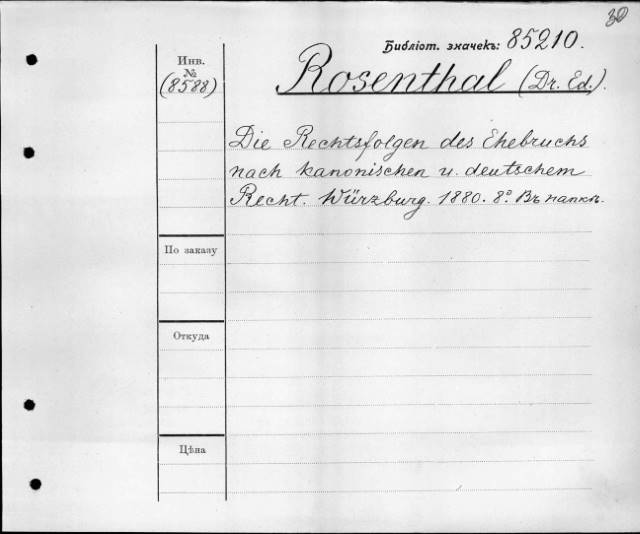 30
Библіот. значекъ: 85210.
Инв.
№
(8588)
Rosenthal (Dr. Ed.).
Die Rechtsfolgen des Ehebruchs
nach kanonischen u. deutschem
Recht. Würzburg. 1880. 8º. Въ папкѣ.
По заказу
Откуда
Цѣна